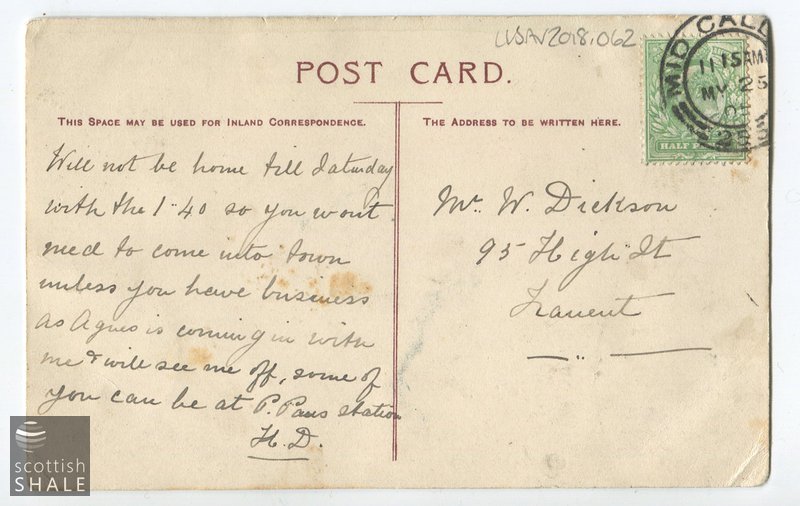 LVSAV2018.062
POST CARD.
THIS SPACE MAY BE USED FOR INLAND CORRESPONDENCE.
THE ADDRESS TO BE WRITTEN HERE.
MID CALD
11 15AM
MY 25
HALF P
Will not be home till Saturday
with the 1-40 so you wont
need to come into town
unless you have business
as Agnes is coming in with
me & will see me off, some of
you can be at P. Pans station
H.D.
Mr. W. Dickson
95 High St
Tranent
scottish
SHALE